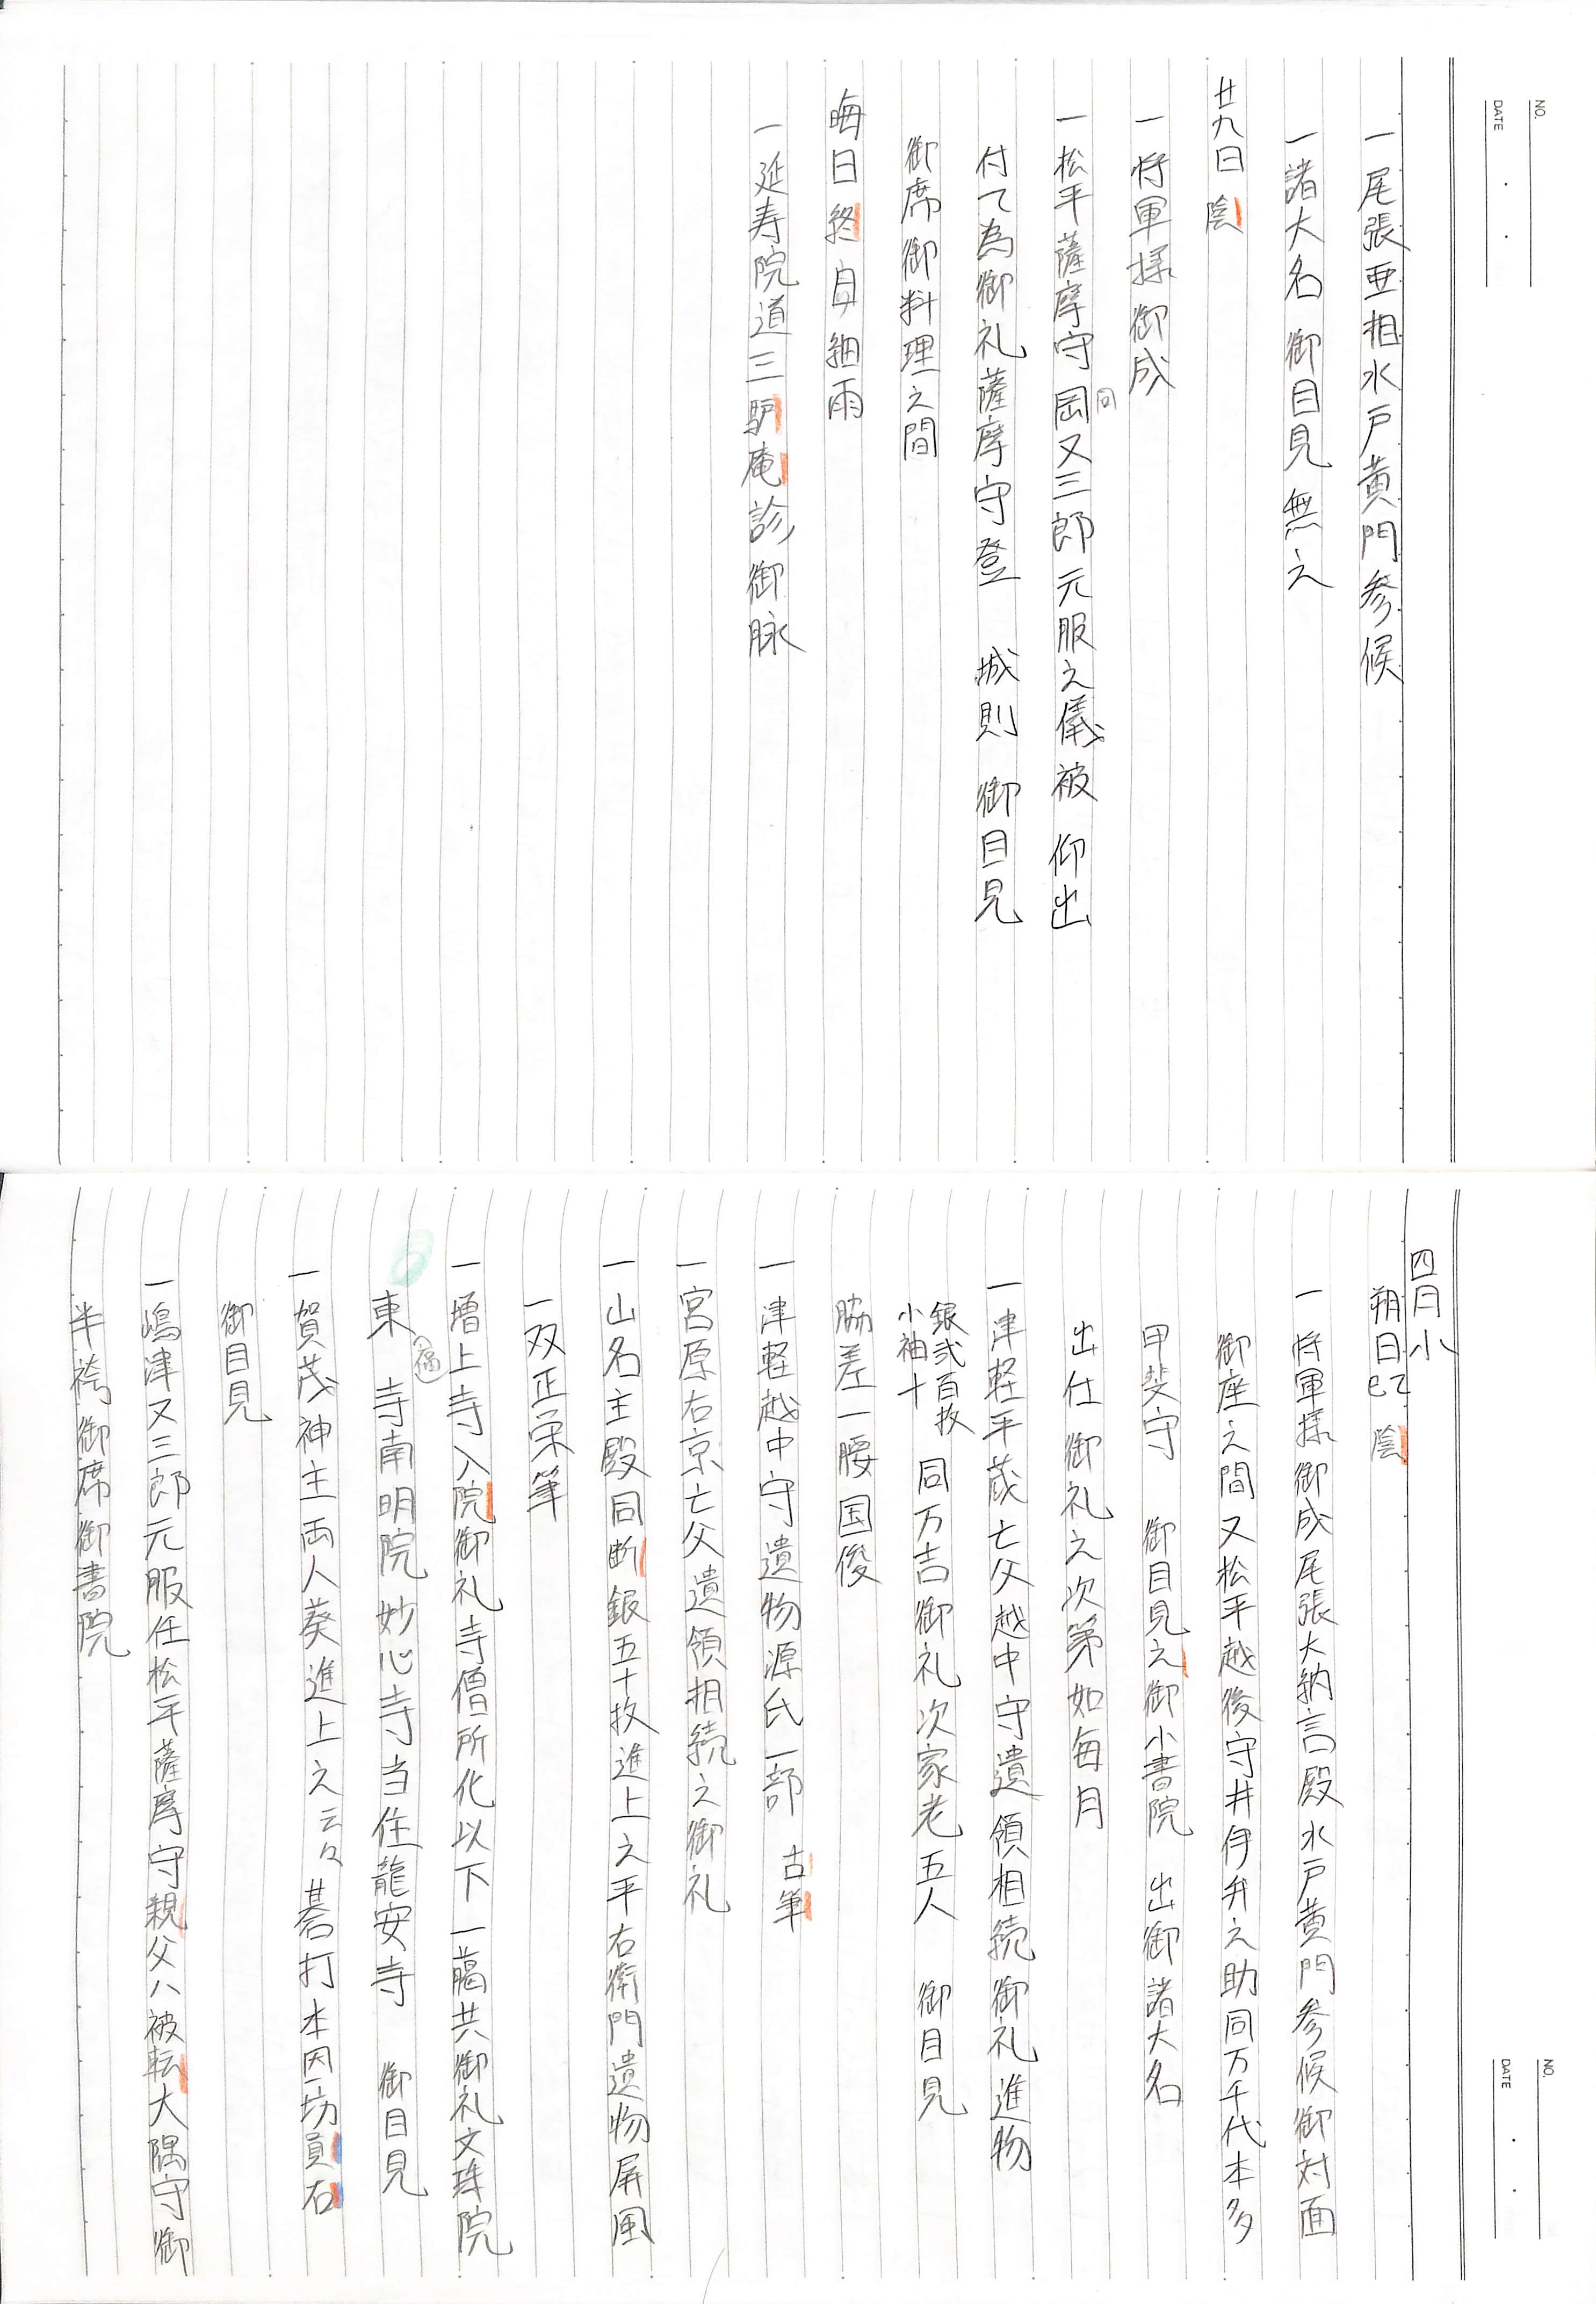 NO.
DATE
一尾張亜相水戸黄門参候
一諸大名 御目見無之
廿九日 陰
一将軍様御成
一松平薩摩守岡又三郎元服之儀被 仰出
同
付て為御礼薩摩守登 城則 御目見
御席御料理之間
晦日終日細雨
一延寿院道三驢庵診御脉
NO.
DATE
四月小
朔日己巳 陰
一将軍様御成尾張大納言殿水戸黄門参候御対面
御座之間又松平越後守井伊弁之助同万千代本多
甲斐守 御目見之御小書院 出御諸大名
出仕御礼之次第如毎月
一津軽平蔵亡父越中守遺領相続御礼進物
銀弐百枚
小袖十
同万吉御礼次家老五人 御目見
脇差一腰国俊
一津軽越中守遺物源氏一部 古筆
一宮原右京亡父遺領相続之御礼
一山名主殿同断銀五十枚進上之平右衛門遺物屏風
一双正栄筆
一増上寺入院御礼寺僧所化以下一臈共御礼文珠院
東 寺南明院妙心寺当住龍安寺 御目見
(福)
一賀茂神主両人葵進上之云々 碁打本因坊員右
御目見
一嶋津又三郎元服任松平薩摩守親父ハ被転大隅守御
半袴御席御書院